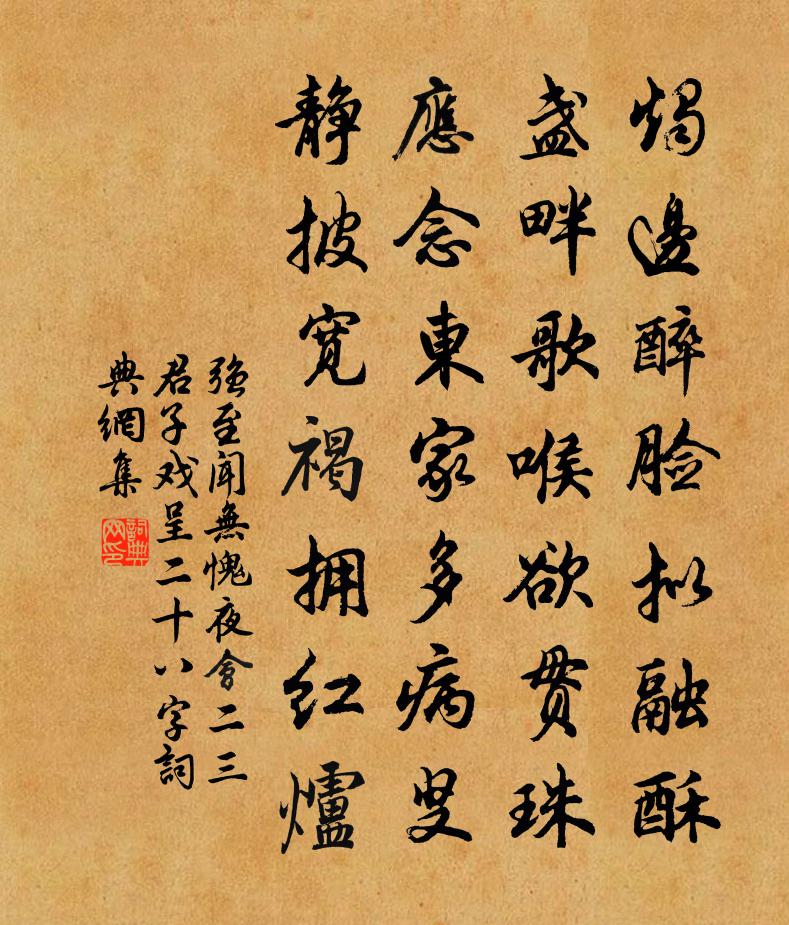 燭邊醉脸拟融酥
盞畔歌喉欲貫珠
應念東家多病叟
静披寬褐拥红爐
强至闻無愧夜會二三
君子戏呈二十八字詞
典網集
詞典网印